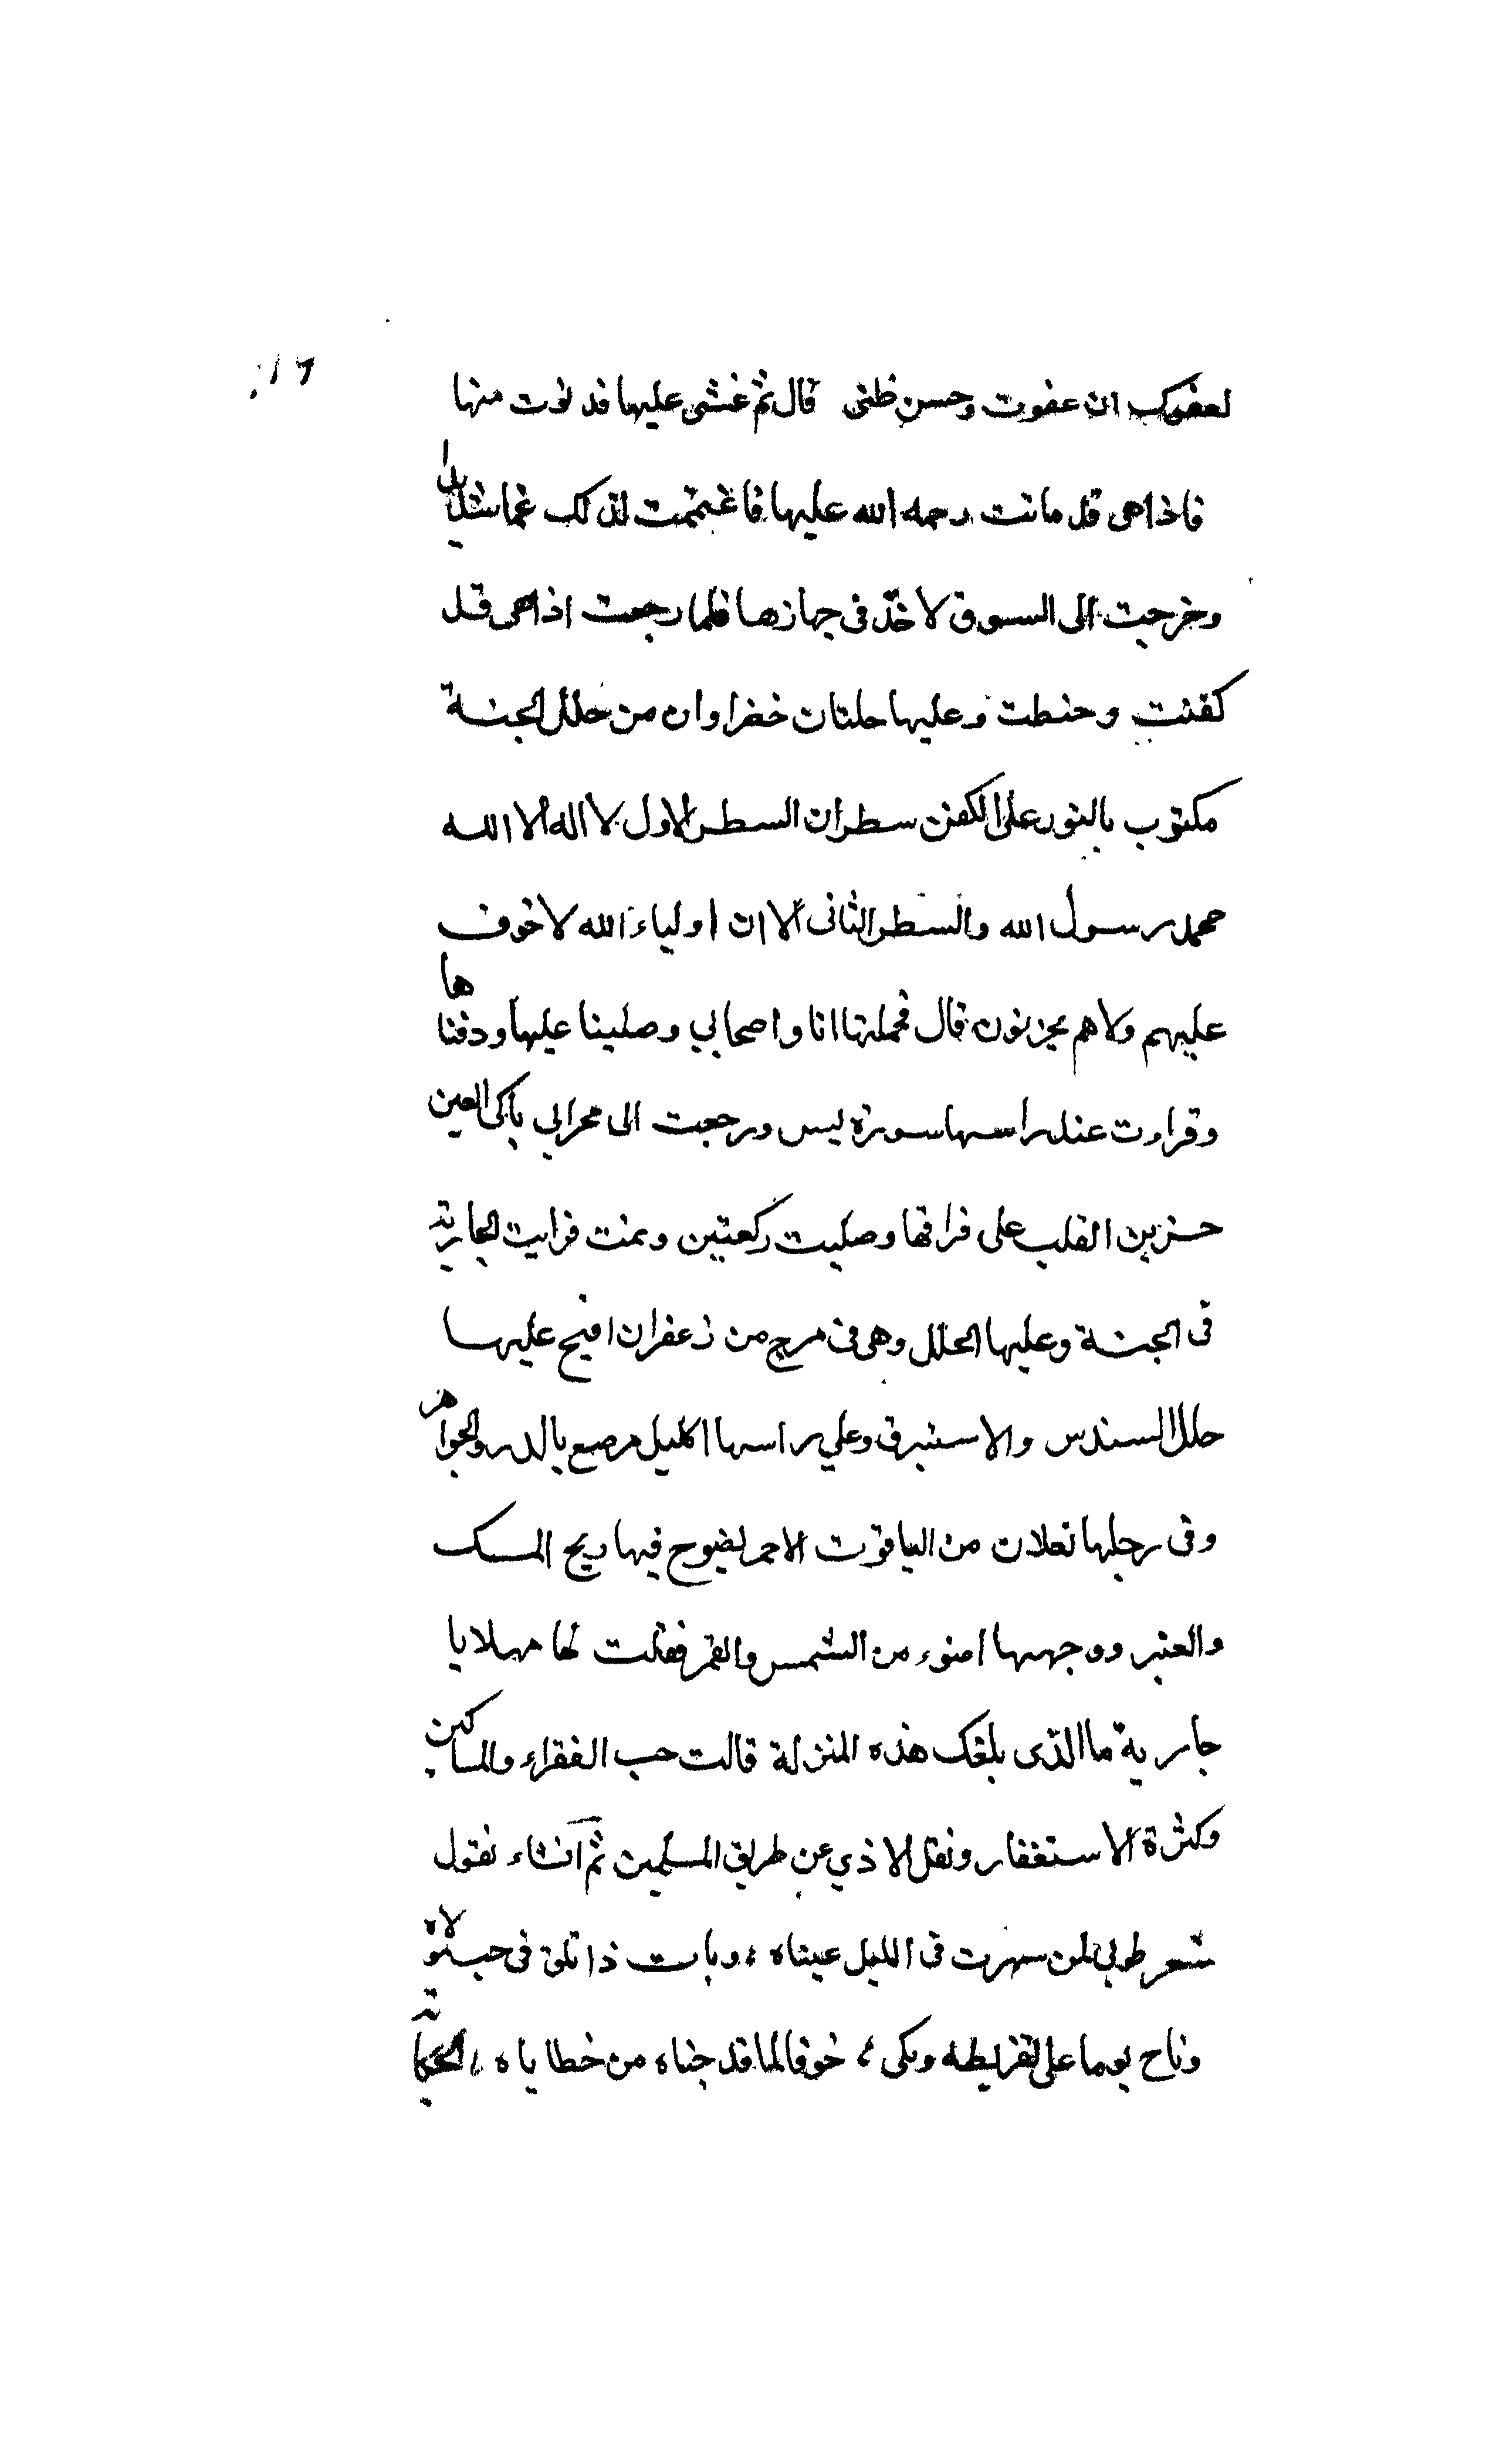 ١٦
لعفوك ان عفوت وحسن ظنى قال ثم غشى عليها فدنوت منها
فاذاهى قد ماتت رحمه الله عليها فاغتممت لذلك غما شديدا
وخرجت الى السوق لاخذ فى جهازها فلما رجعت اذاهى قد
كفنت وحنطت وعليها حلتان خضراوان من حلل الجنة
مكتوب بالنور على الكفن سطران السطر الاول لا اله الا الله
محمد رسول الله والسطر الثانى الا ان اولياء الله لا خوف
عليهم ولاهم يحزنون قال فحملتها انا واصحابي وصلينا عليها ودفناها
وقراءت عند راسها سورة يس ورجعت الى محرابي باكى العين
حزين القلب على فراقها وصليت ركعتين ونمت فرايت الجارية
فى الجنة وعليها الحلل وهى فى مرج من زعفران افيح عليها
حلل السندس والاستبرق وعلي راسها اكليل مرصع بالدر والجواهر
وفى رجليها نعلان من الياقوت الاحمر يفوح فيها ريح المسك
والعنبر ووجهها اضوء من الشمس والقمر فقلت لها مهلا يا
جارية ما الذى بلغك هذه المنزلة قالت حب الفقراء والمساكين
وكثرة الاستغفار ونقل الاذي عن طريق المسلمين ثم انشاء تقول
شعر طوبي لمن سهرت فى الليل عيناه ، وبات ذا قلق فى حب مولاه
وناح يوما على تفريطه وبكى ، خوفا لما قد جناه من خطاياه ، الحكاية